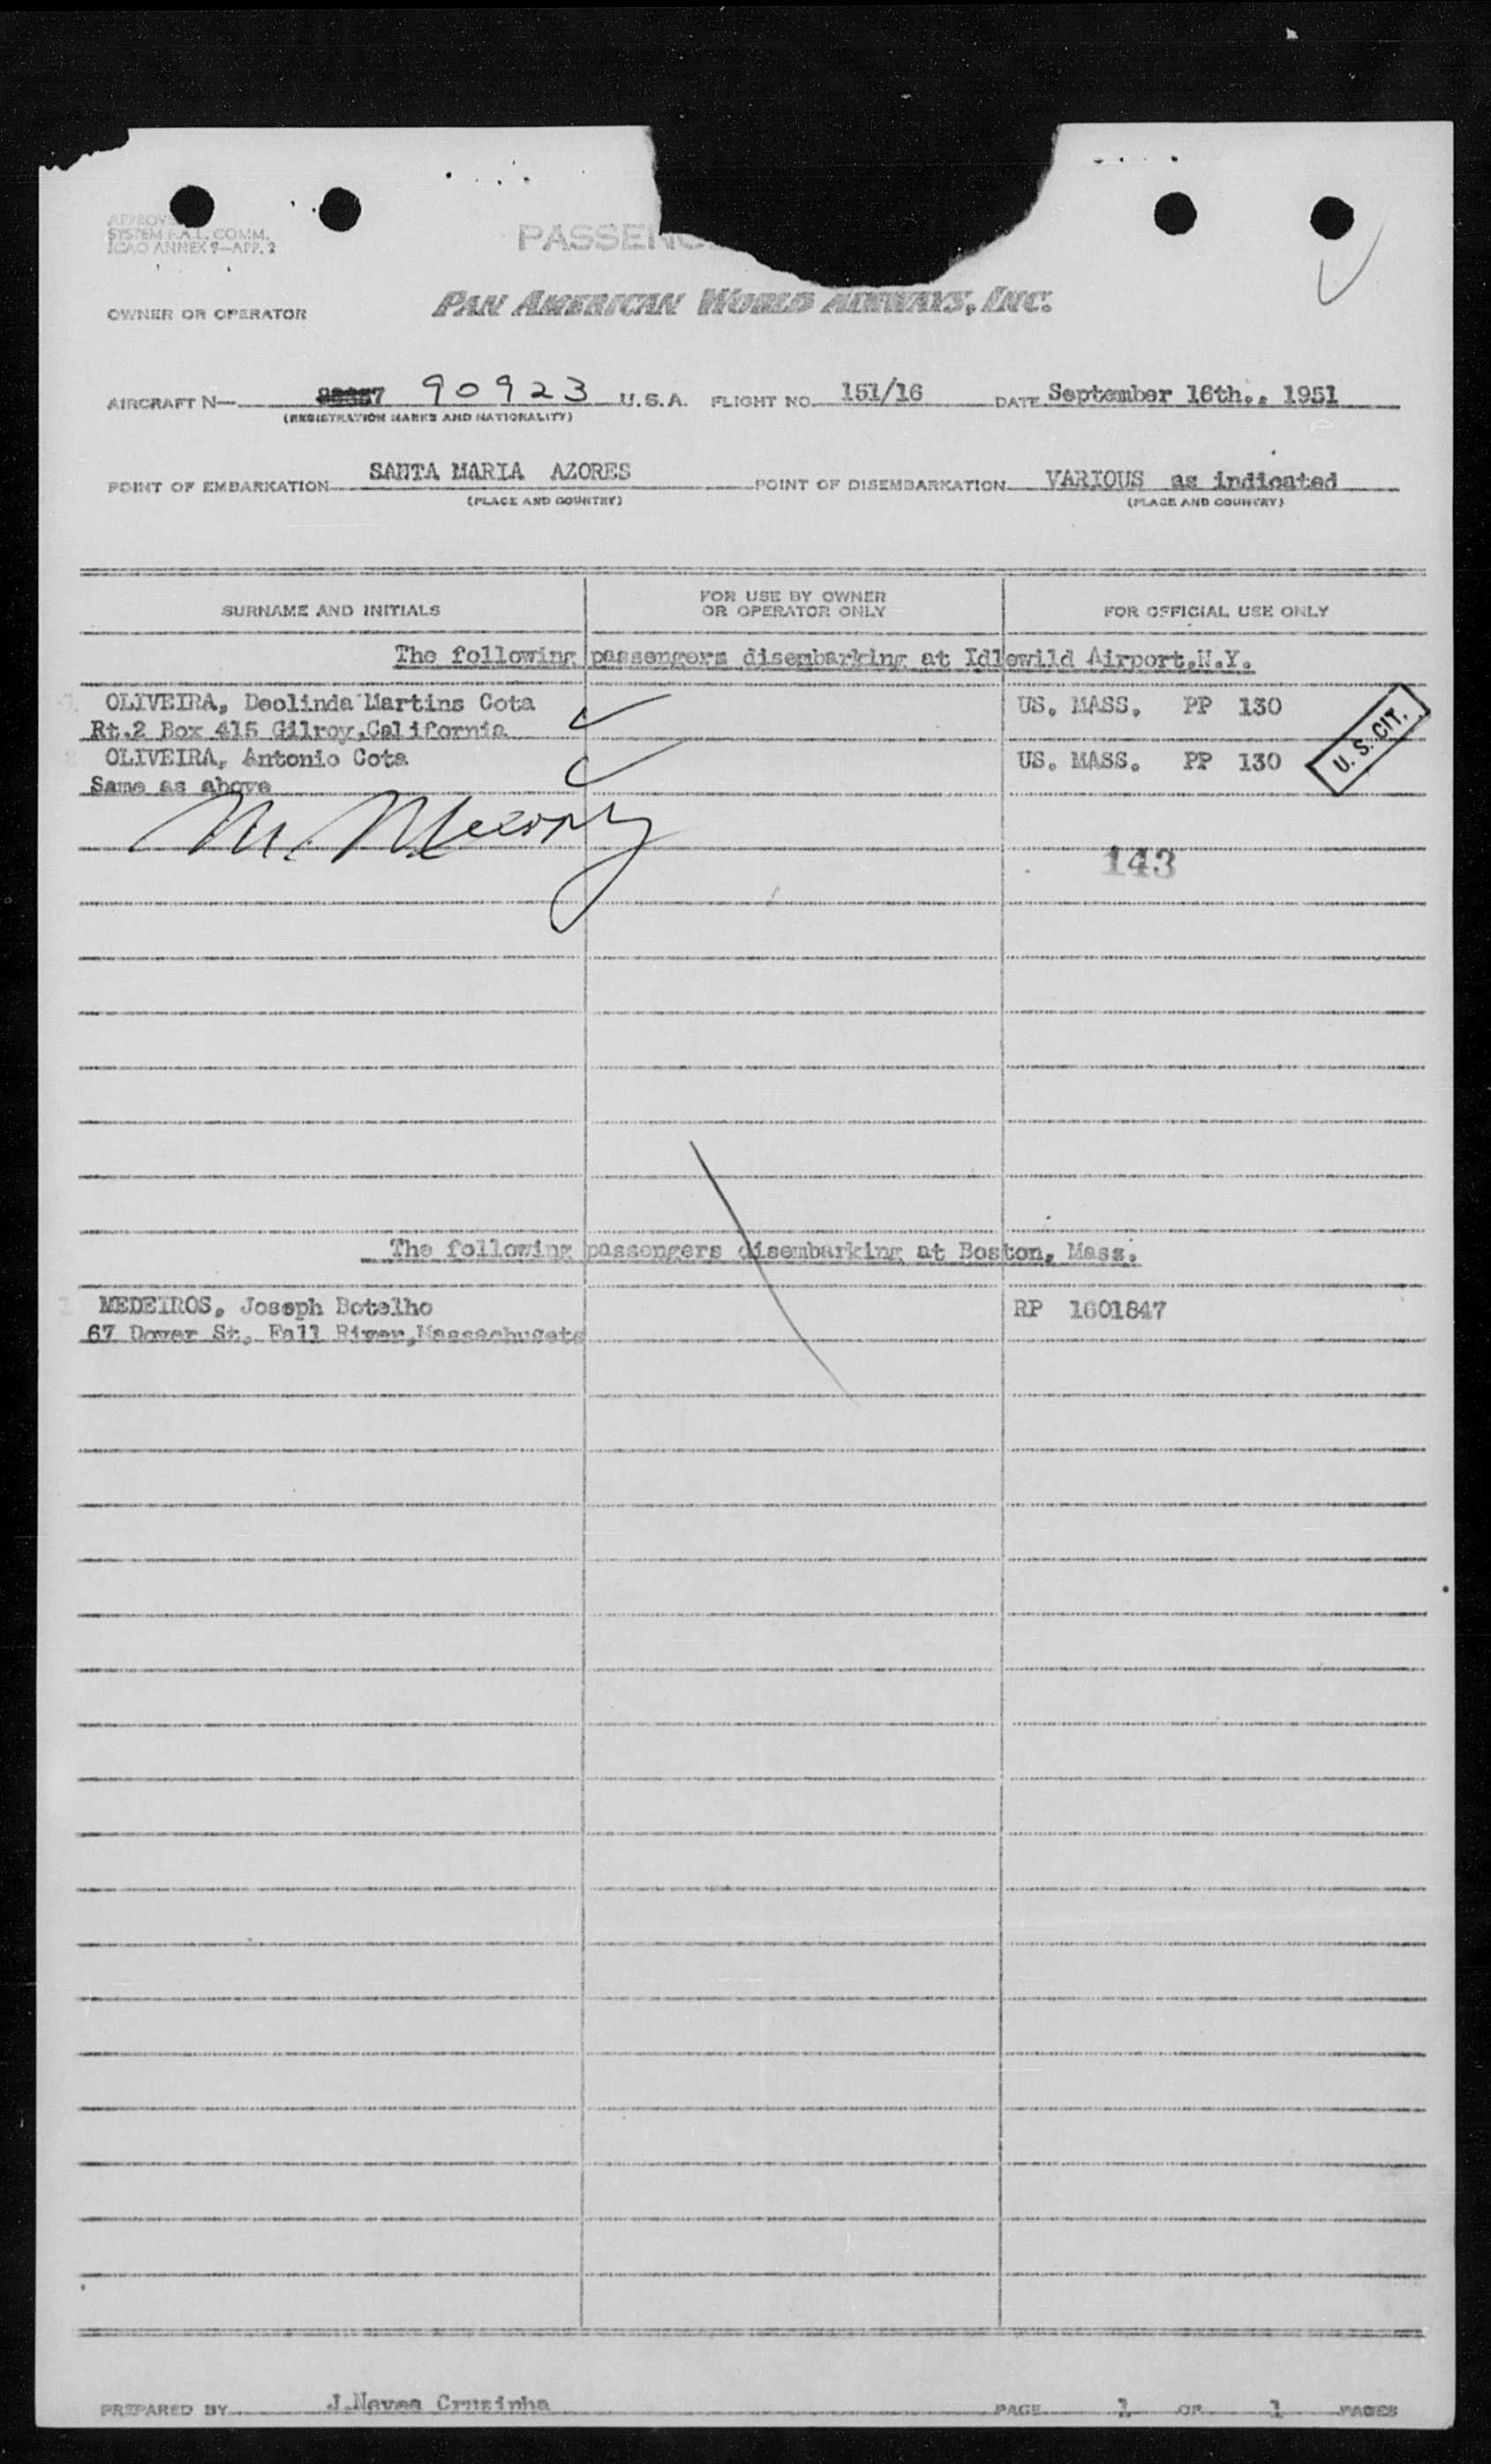 SYSTEM F.A.L. COMM.
ICAO ANNEX 9—APP. 2
OWNER OR OPERATOR
PAN AMERICAN WORLD AIRWAYS, INC.
AIRCRAFT N— 90923 U.S.A. FLIGHT NO. 151/16 DATE September 16th., 1951
(REGISTRATION MARKS AND NATIONALITY)
POINT OF EMBARKATION SANTA MARIA AZORES POINT OF DISEMBARKATION VARIOUS as indicated
(PLACE AND COUNTRY) (PLACE AND COUNTRY)
SURNAME AND INITIALS FOR USE BY OWNER OR OPERATOR ONLY FOR OFFICIAL USE ONLY
The following passengers disembarking at Idlewild Airport,N.Y.
OLIVEIRA, Deolinda Martins Cota US. MASS. PP 130
Rt.2 Box 415 Gilroy,California
U. S. CIT.
OLIVEIRA, Antonio Cota US. MASS. PP 130
Same as above
143
The following passengers disembarking at Boston, Mass.
MEDEIROS, Joseph Botelho RP 1601847
67 Dover St, Fall River,Massachusets
PREPARED BY J.Neves Crusinha PAGE 1 OF 1 PAGES